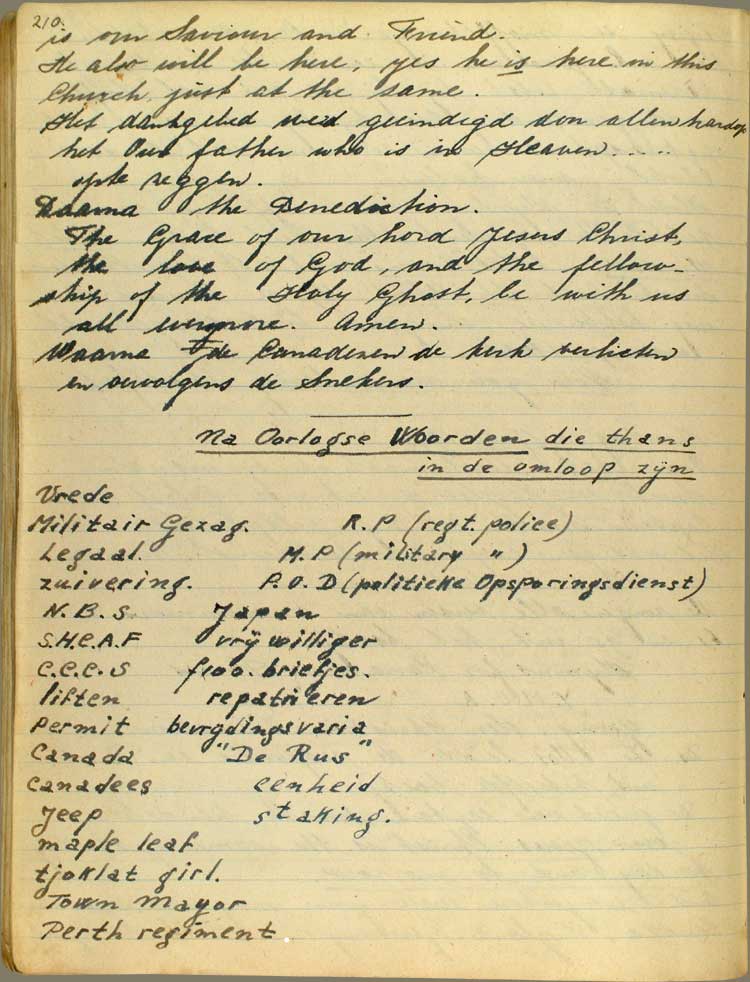 210.
is our Saviour and Friend.
He also will be here, yes he is here in this
Church just at the same.
Het dankgebed werd geeindigd don allen hardop
het Our father who is in Heaven.....
op te zeggen.
Daarna the Benediction.
The Grace of our Lord Jesus Christ,
the love of God, and the fellow-
ship of the Holy Ghost, be with us
all evermore. Amen.
Waarna de Canadezen de kerk verlieten
en vervolgens de Snekers.
Na Oorlogse Woorden die thans
in de omloop zijn
Vrede
Militair Gezag. R.P (regt. police)
Legaal. M.P (military " )
zuivering. P.O.D (politieke Opsporingsdienst)
N.B.S Japan
S.H.E.A.F vrijwilliger
C.C.C.S f100. briefjes.
liften repatriëren
permit bevrydingsvaria
Canada "De Rus"
Canadees eenheid
Jeep staking.
maple leaf
tjoklat girl.
Town Mayor
Perth regiment